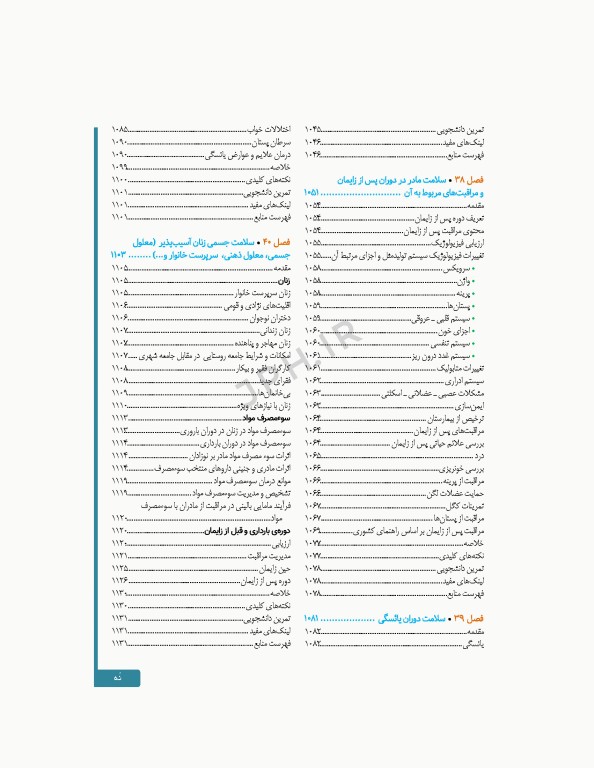 تمرین دانشجویی..........۱۰۴۵
لینک‌های مفید..........۱۰۴۶
فهرست منابع..........۱۰۴۶
فصل ۳۸ • سلامت مادر در دوران پس از زایمان
و مراقبت‌های مربوط به آن ..........۱۰۵۱
مقدمه..........۱۰۵۴
تعریف دوره پس از زایمان..........۱۰۵۴
محتوی مراقبت پس از زایمان..........۱۰۵۴
ارزیابی فیزیولوژیک..........۱۰۵۵
تغییرات فیزیولوژیک سیستم تولیدمثل و اجزای مرتبط آن.....۱۰۵۵
• سرویکس..........۱۰۵۸
• واژن..........۱۰۵۸
• پرینه..........۱۰۵۸
• پستان‌ها..........۱۰۵۹
• سیستم قلبی ـ عروقی..........۱۰۵۹
• اجزای خون..........۱۰۶۰
• سیستم تنفسی..........۱۰۶۰
• سیستم غدد درون ریز..........۱۰۶۱
تغییرات متابولیک..........۱۰۶۱
سیستم ادراری..........۱۰۶۲
مشکلات عصبی ـ عضلانی ـ اسکلتی..........۱۰۶۳
ایمن‌سازی..........۱۰۶۳
ترخیص از بیمارستان..........۱۰۶۴
مراقبت‌های پس از زایمان..........۱۰۶۴
بررسی علائم حیاتی پس از زایمان..........۱۰۶۴
درد..........۱۰۶۵
بررسی خونریزی..........۱۰۶۶
مراقبت از پرینه..........۱۰۶۶
حمایت عضلات لگن..........۱۰۶۶
تمرینات کگل..........۱۰۶۷
مراقبت از پستان‌ها..........۱۰۶۷
مراقبت پس از زایمان بر اساس راهنمای کشوری..........۱۰۶۹
خلاصه..........۱۰۷۷
نکته‌های کلیدی..........۱۰۷۷
تمرین دانشجویی..........۱۰۷۸
لینک‌های مفید..........۱۰۷۸
فهرست منابع..........۱۰۷۸
فصل ۳۹ • سلامت دوران یائسگی ..........۱۰۸۱
مقدمه..........۱۰۸۲
یائسگی..........۱۰۸۲
اختلالات خواب..........۱۰۸۵
سرطان پستان..........۱۰۹۰
درمان علایم و عوارض یائسگی..........۱۰۹۰
خلاصه..........۱۰۹۹
نکته‌های کلیدی..........۱۱۰۰
تمرین دانشجویی..........۱۱۰۱
لینک‌های مفید..........۱۱۰۱
فهرست منابع..........۱۱۰۱
فصل ۴۰ • سلامت جسمی زنان آسیب‌پذیر (معلول
جسمی، معلول ذهنی، سرپرست خانوار و...) ........ ۱۱۰۳
مقدمه..........۱۱۰۵
زنان..........۱۱۰۵
زنان سرپرست خانوار..........۱۱۰۵
اقلیت‌های نژادی و قومی..........۱۱۰۶
دختران نوجوان..........۱۱۰۶
زنان زندانی..........۱۱۰۷
زنان مهاجر و پناهنده..........۱۱۰۷
امکانات و شرایط جامعه روستایی در مقابل جامعه شهری.....۱۱۰۷
کارگران فقیر و بیکار..........۱۱۰۸
فقرای جدید..........۱۱۰۸
بی‌خانمان‌ها..........۱۱۰۹
زنان با نیازهای ویژه..........۱۱۱۰
سوءمصرف مواد..........۱۱۱۳
سوءمصرف مواد در زنان در دوران باروری..........۱۱۱۳
سوءمصرف مواد در دوران بارداری..........۱۱۱۴
اثرات سوء مصرف مواد مادر بر نوزادان..........۱۱۱۴
اثرات مادری و جنینی داروهای منتخب سوءمصرف..........۱۱۱۴
موانع درمان سوءمصرف مواد..........۱۱۱۹
تشخیص و مدیریت سوءمصرف مواد..........۱۱۱۹
فرآیند مامایی بالینی در مراقبت از مادران با سوءمصرف
مواد..........۱۱۲۰
دوره‌ی بارداری و قبل از زایمان..........۱۱۲۰
ارزیابی..........۱۱۲۰
مدیریت مراقبت..........۱۱۲۱
حین زایمان..........۱۱۲۵
دوره پس از زایمان..........۱۱۲۶
خلاصه..........۱۱۳۰
نکته‌های کلیدی..........۱۱۳۰
تمرین دانشجویی..........۱۱۳۱
لینک‌های مفید..........۱۱۳۱
فهرست منابع..........۱۱۳۱
JPH.IR